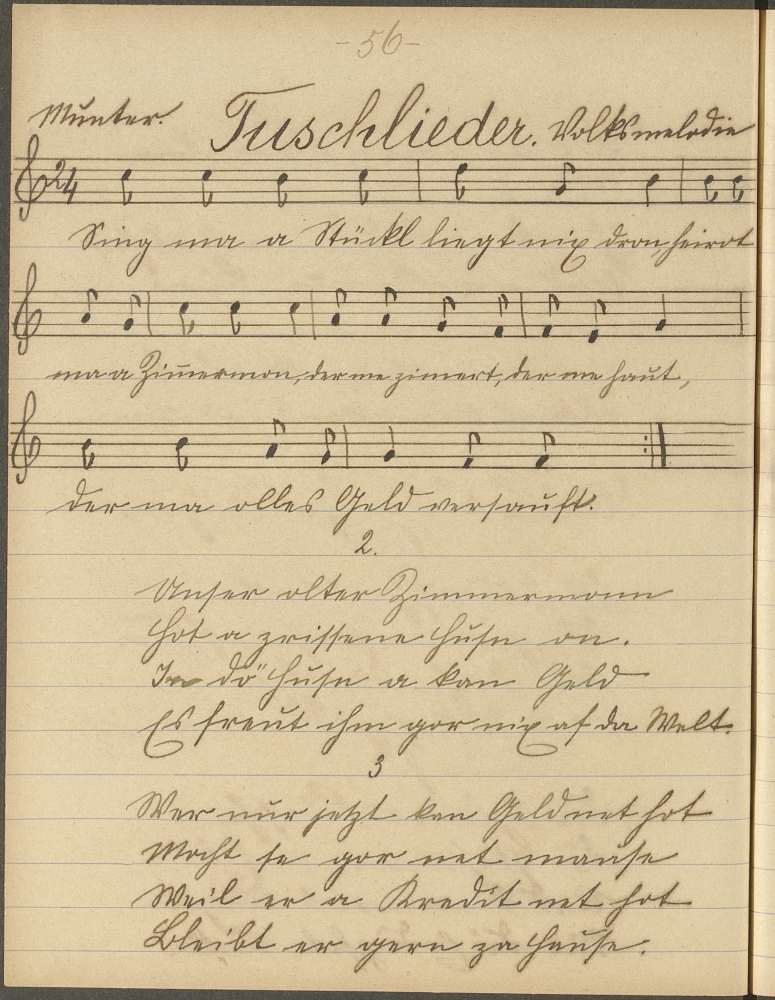 -56-
Munter. Tuschlieder. Volksmelodie
2/4
Sing ma a Stückl liegt nix dran, heirot
ma a Zim̄ermon, der me zimert, der me haut,
der ma olles Geld versauft.
2.
Unser olter Zimmermann
Hot a zrissene Husn on.
In dö Husn a kan Geld
Es freut ihm gor nix af da Welt.
3
Wer nur jetzt kan Geld net hot
Mocht se gor net
Weil er a Kredit net hot
Bleibt er gern za Hause.